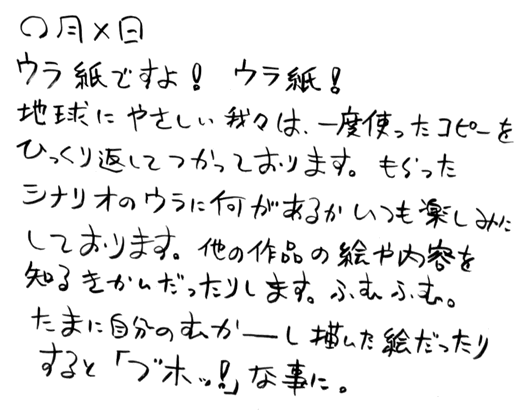 〇月×日
ウラ紙ですよ！ ウラ紙！
地球にやさしい我々は、一度使ったコピーを
ひっくり返してつかっております。もらった
シナリオのウラに何があるかいつも楽しみに
しております。他の作品の絵や内容を
知るきかいだったりします。ふむふむ。
たまに自分のむか――し描いた絵だったり
すると「ブホッ！」な事に。